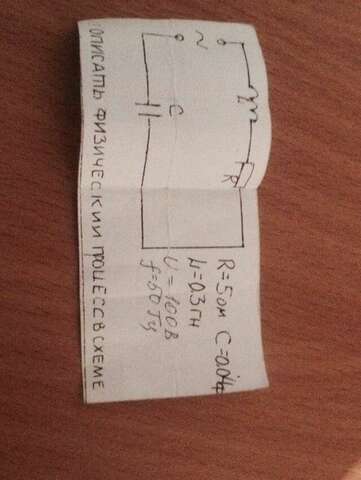 L
R
~
C
R=5ом C=0.04ф
L=0.3гн
U=100В
f=50Гц
ОПИСАТЬ ФИЗИЧЕСКИЙ ПРОЦЕСС В СХЕМЕ